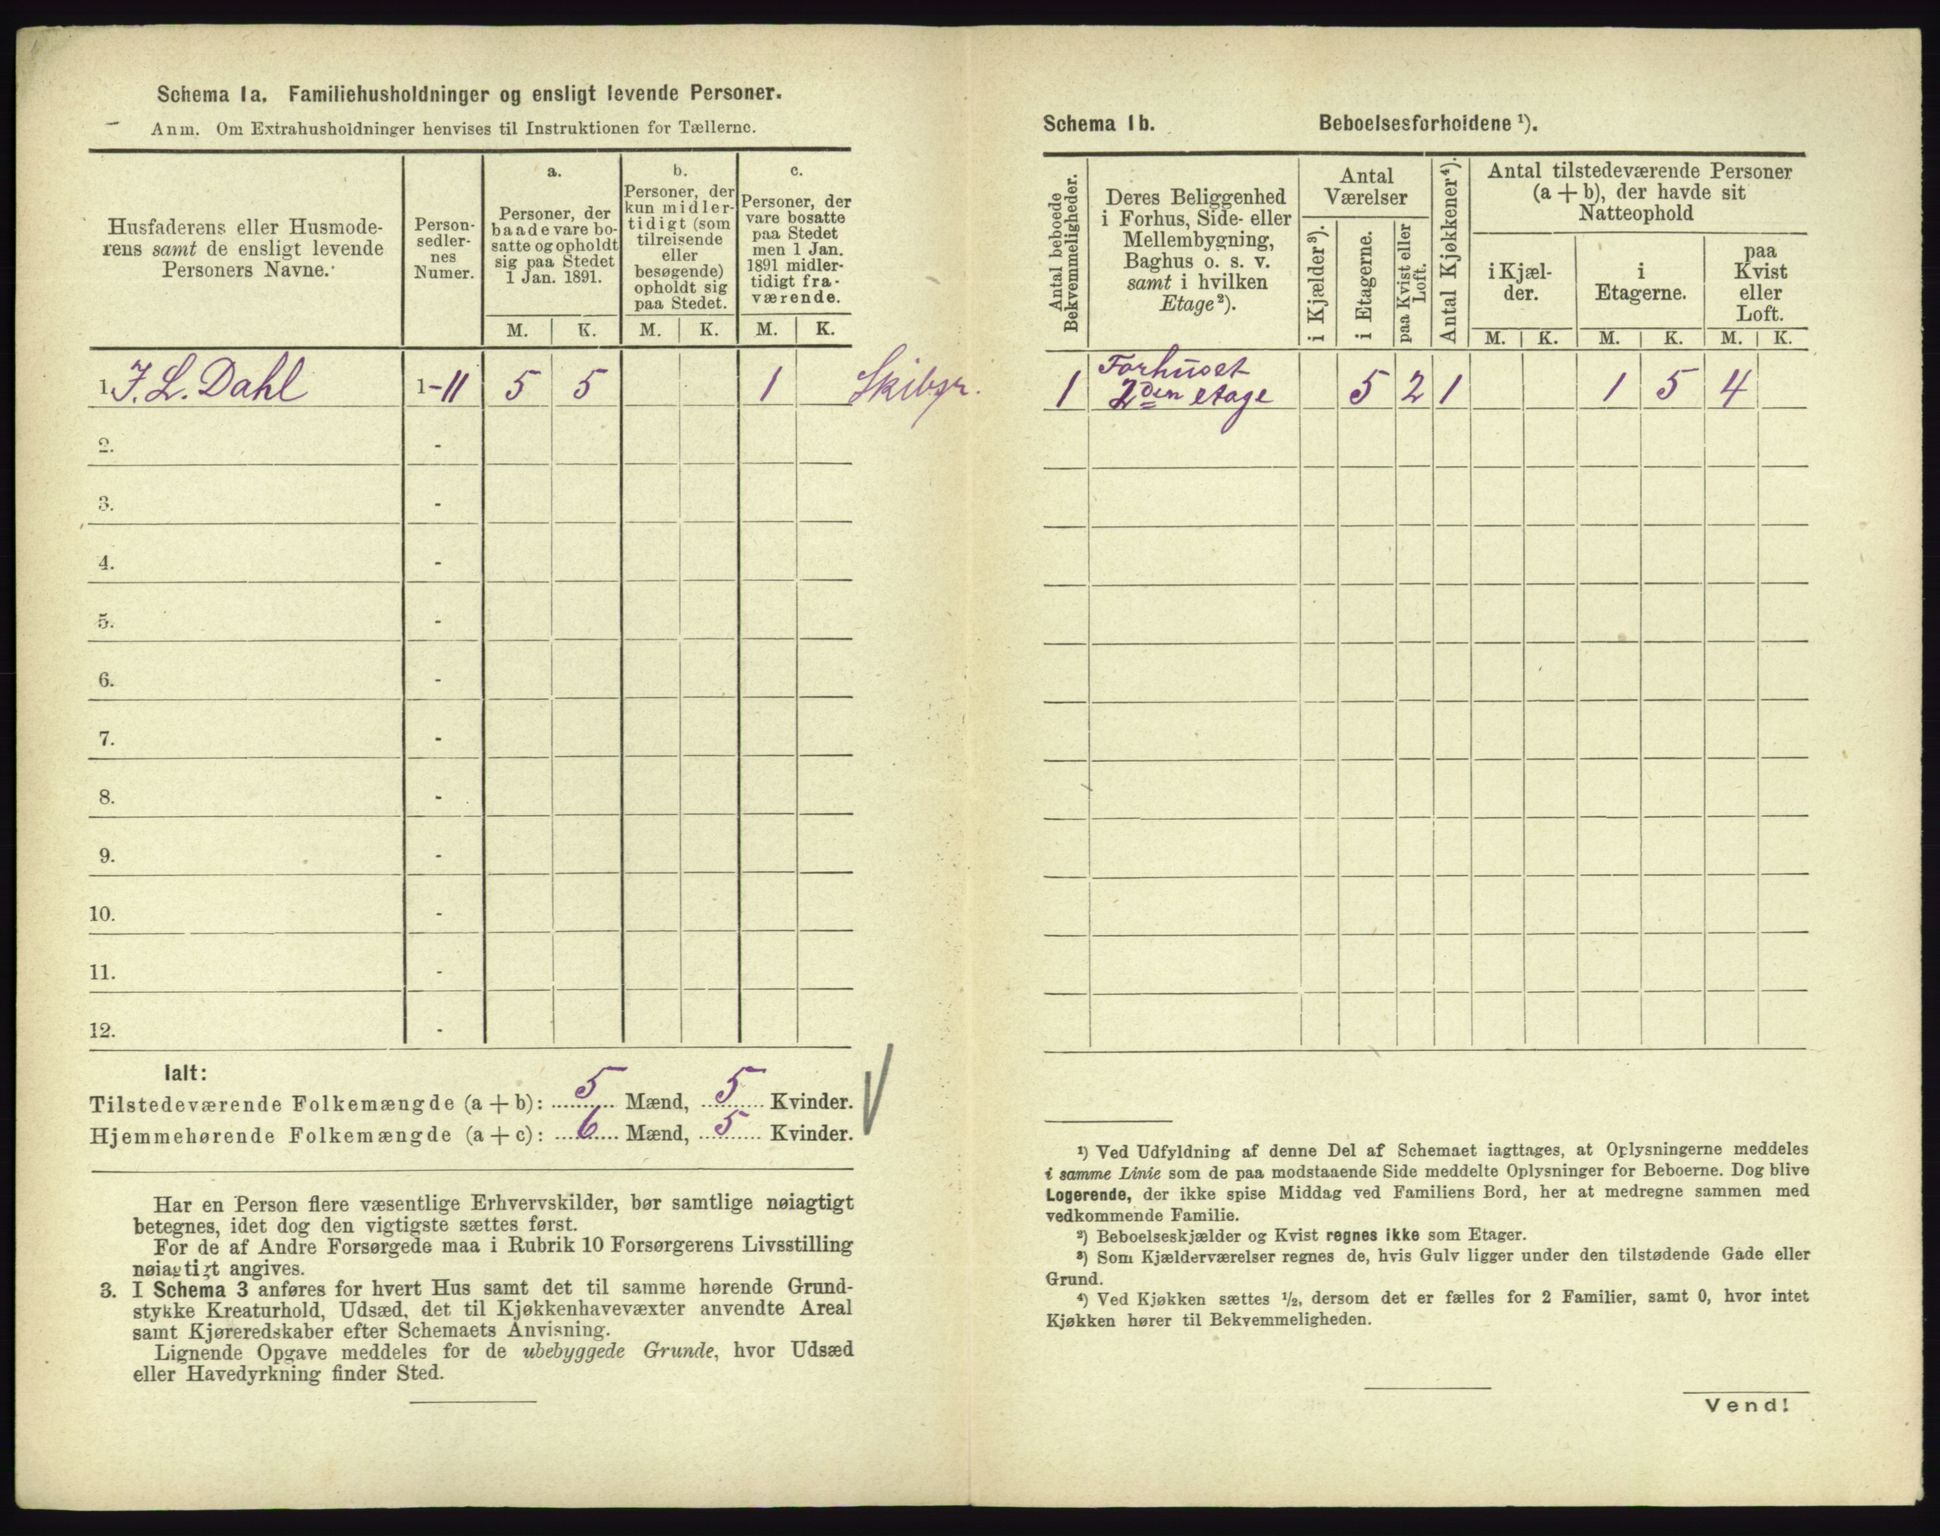 Schema 1a. Familiehusholdninger og ensligt levende Personer.
Anm. Om Extrahusholdninger henvises til Instruktionen for Tællerne.
Husfaderens eller Husmode-
rens samt de ensligt levende
Personers Navne.
Person-
sedler-
nes
Numer.
a.
Personer, der
baade vare bo-
satte og opholdt
sig paa Stedet
1 Jan. 1891.
b.
Personer, der
kun midler-
tidigt (som
tilreisende
eller
besøgende)
opholdt sig
paa Stedet.
c.
Personer, der
vare bosatte
paa Stedet
men 1 Jan.
1891 midler-
tidigt fra-
værende.
M. K. M. K. M. K.
1. J. L. Dahl 1-11 5 5 1
2. -
3. -
4. -
5. -
6. -
7. -
8. -
9. -
10. -
11. -
12. -
Ialt:
Tilstedeværende Folkemængde (a + b): 5 Mænd, 5 Kvinder.
Hjemmehørende Folkemængde (a + c): 6 Mænd, 5 Kvinder.
Har en Person flere væsentlige Erhvervskilder, bør samtlige nøiagtigt
betegnes, idet dog den vigtigste sættes først.
For de af Andre Forsørgede maa i Rubrik 10 Forsørgerens Livsstilling
nøiagtigt angives.
3. I Schema 3 anføres for hvert Hus samt det til samme hørende Grund-
stykke Kreaturhold, Udsæd, det til Kjøkkenhavevæxter anvendte Areal
samt Kjøreredskaber efter Schemaets Anvisning.
Lignende Opgave meddeles for de ubebyggede Grunde, hvor Udsæd
eller Havedyrkning finder Sted.
Schema 1b. Beboelsesforholdene ¹).
Antal beboede
Bekvemmeligheder.
Deres Beliggenhed
i Forhus, Side- eller
Mellembygning,
Baghus o. s. v.
samt i hvilken
Etage²).
Antal
Værelser
i Kjælder³).
i Etagerne.
paa Kvist eller
Loft.
Antal Kjøkkener⁴).
Antal tilstedeværende Personer
(a + b), der havde sit
Natteophold
i Kjæl-
der.
i
Etagerne.
paa
Kvist
eller
Loft.
M. K. M. K. M. K.
1 Forhuset
2den etage 5 2 1 1 5 4
¹) Ved Udfyldning af denne Del af Schemaet iagttages, at Oplysningerne meddeles
i samme Linie som de paa modstaaende Side meddelte Oplysninger for Beboerne. Dog blive
Logerende, der ikke spise Middag ved Familiens Bord, her at medregne sammen med
vedkommende Familie.
²) Beboelseskjælder og Kvist regnes ikke som Etager.
³) Som Kjælderværelser regnes de, hvis Gulv ligger under den tilstødende Gade eller
Grund.
⁴) Ved Kjøkken sættes ½, dersom det er fælles for 2 Familier, samt 0, hvor intet
Kjøkken hører til Bekvemmeligheden.
Vend!